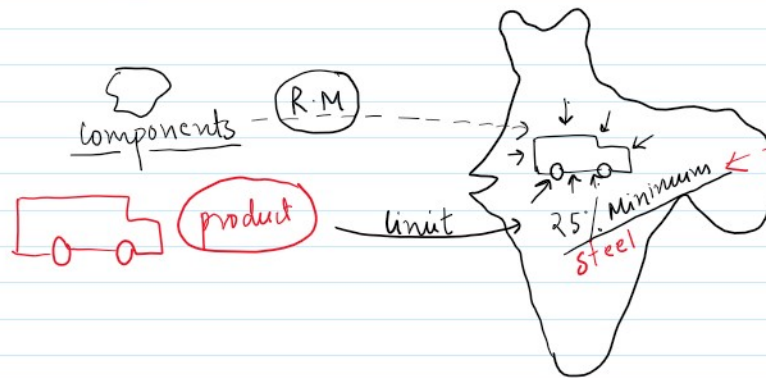 R.M
components
product
limit
25% Minimum
steel